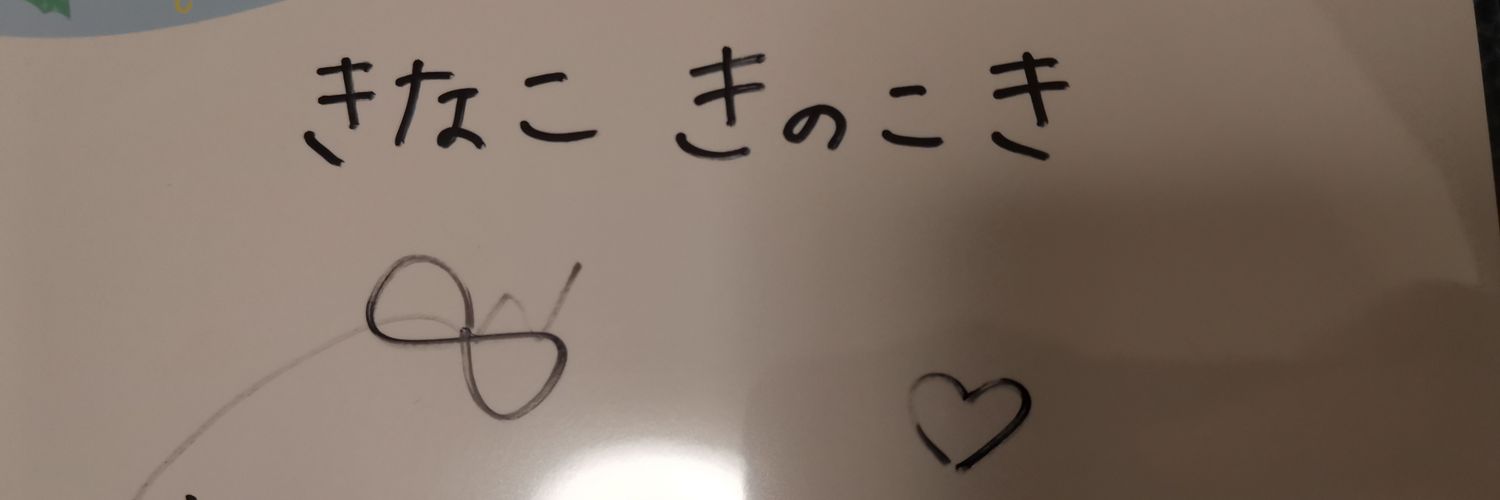 きなこ きのこき